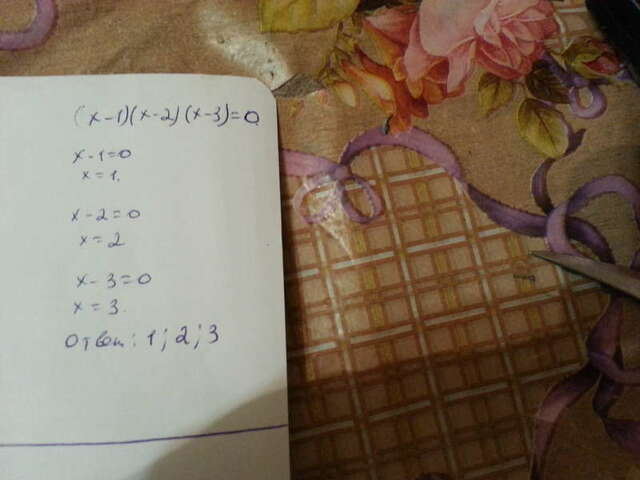 (x-1)(x-2)(x-3)=0
x-1=0
x=1.
x-2=0
x=2
x-3=0
x=3.
Ответ: 1; 2; 3